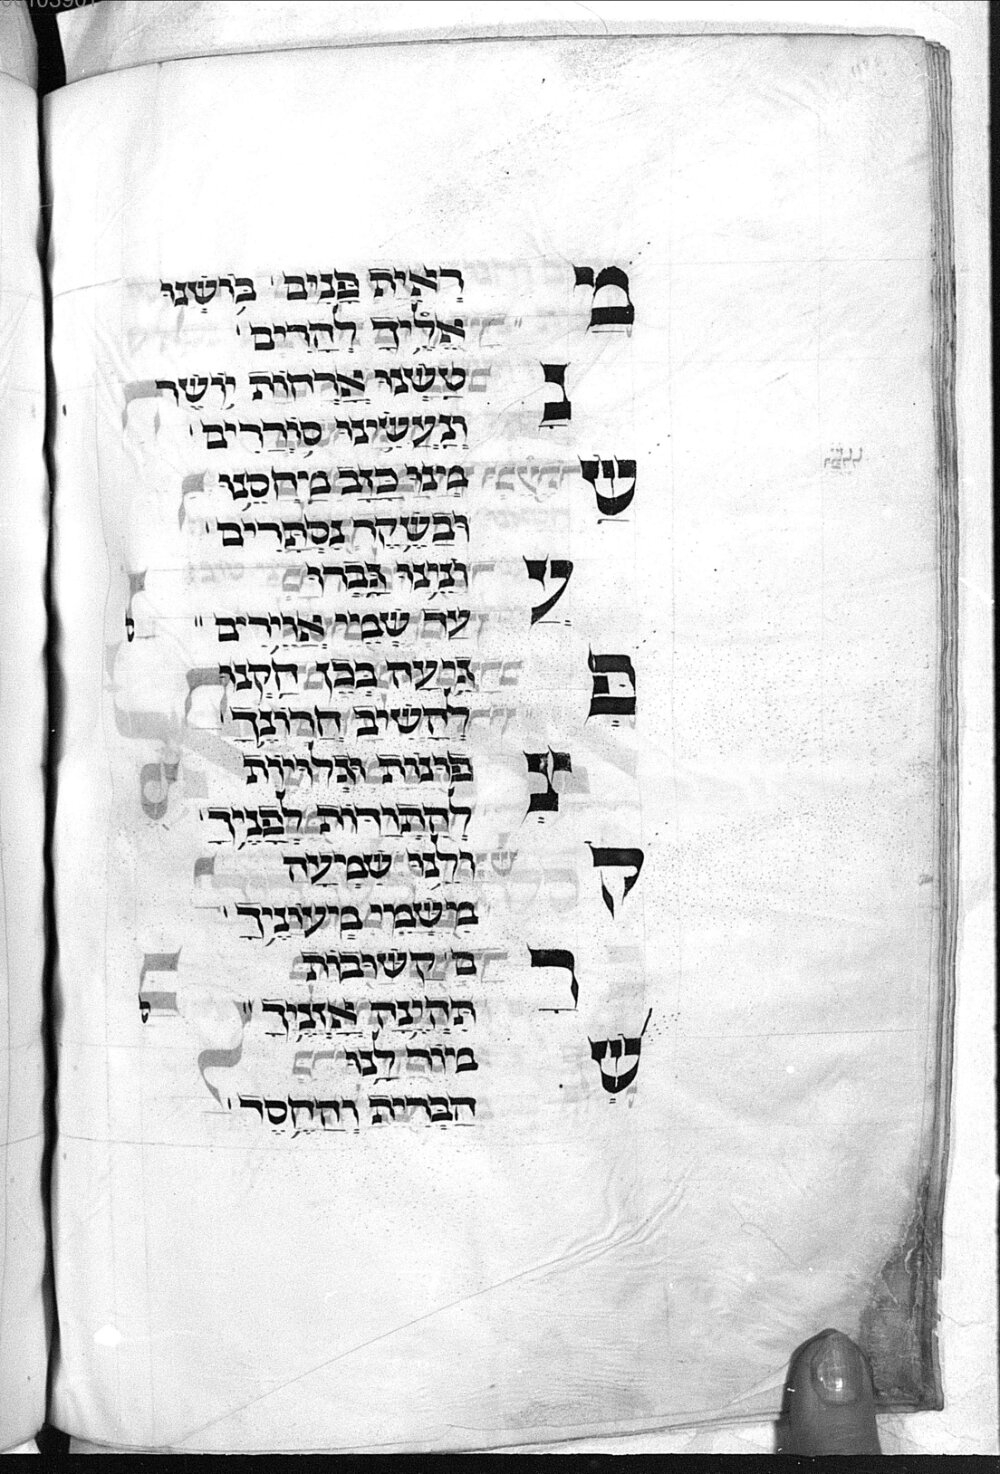 מֵרְאִיַּת פָּנִים בּוֹשְׁנוּ
אֵלֶיךָ לְהָרִים
נָטַשְׁנוּ אֳרָחוֹת יוֹשֶׁר
וְנַעֲשִׂינוּ סוֹרְרִים
שַׂמְנוּ כָזָב מַחְסֵנוּ
וּבַשֶּׁקֶר נִסְתָּרִים
עֲוֹנֵינוּ גָּבְרוּ
עַד שְׁמֵי אֲוִירִים
פְּגִיעַת בְּכֵן חַקֵּנוּ
לְהָשִׁיב חֲרוֹנָךְ
צָ פּוּנוֹת וּגְלוּיוֹת
לְפָנֶיךָ
קוֹלֵנוּ שְׁמָעָה
מִשְּׁמֵי מְעוֹנֶיךָ
רָם קַשּׁוּבוֹת
אָזְנֶיךָ
שָׁמוֹר לָנוּ
הַבְּרִית וְהַחֶסֶד